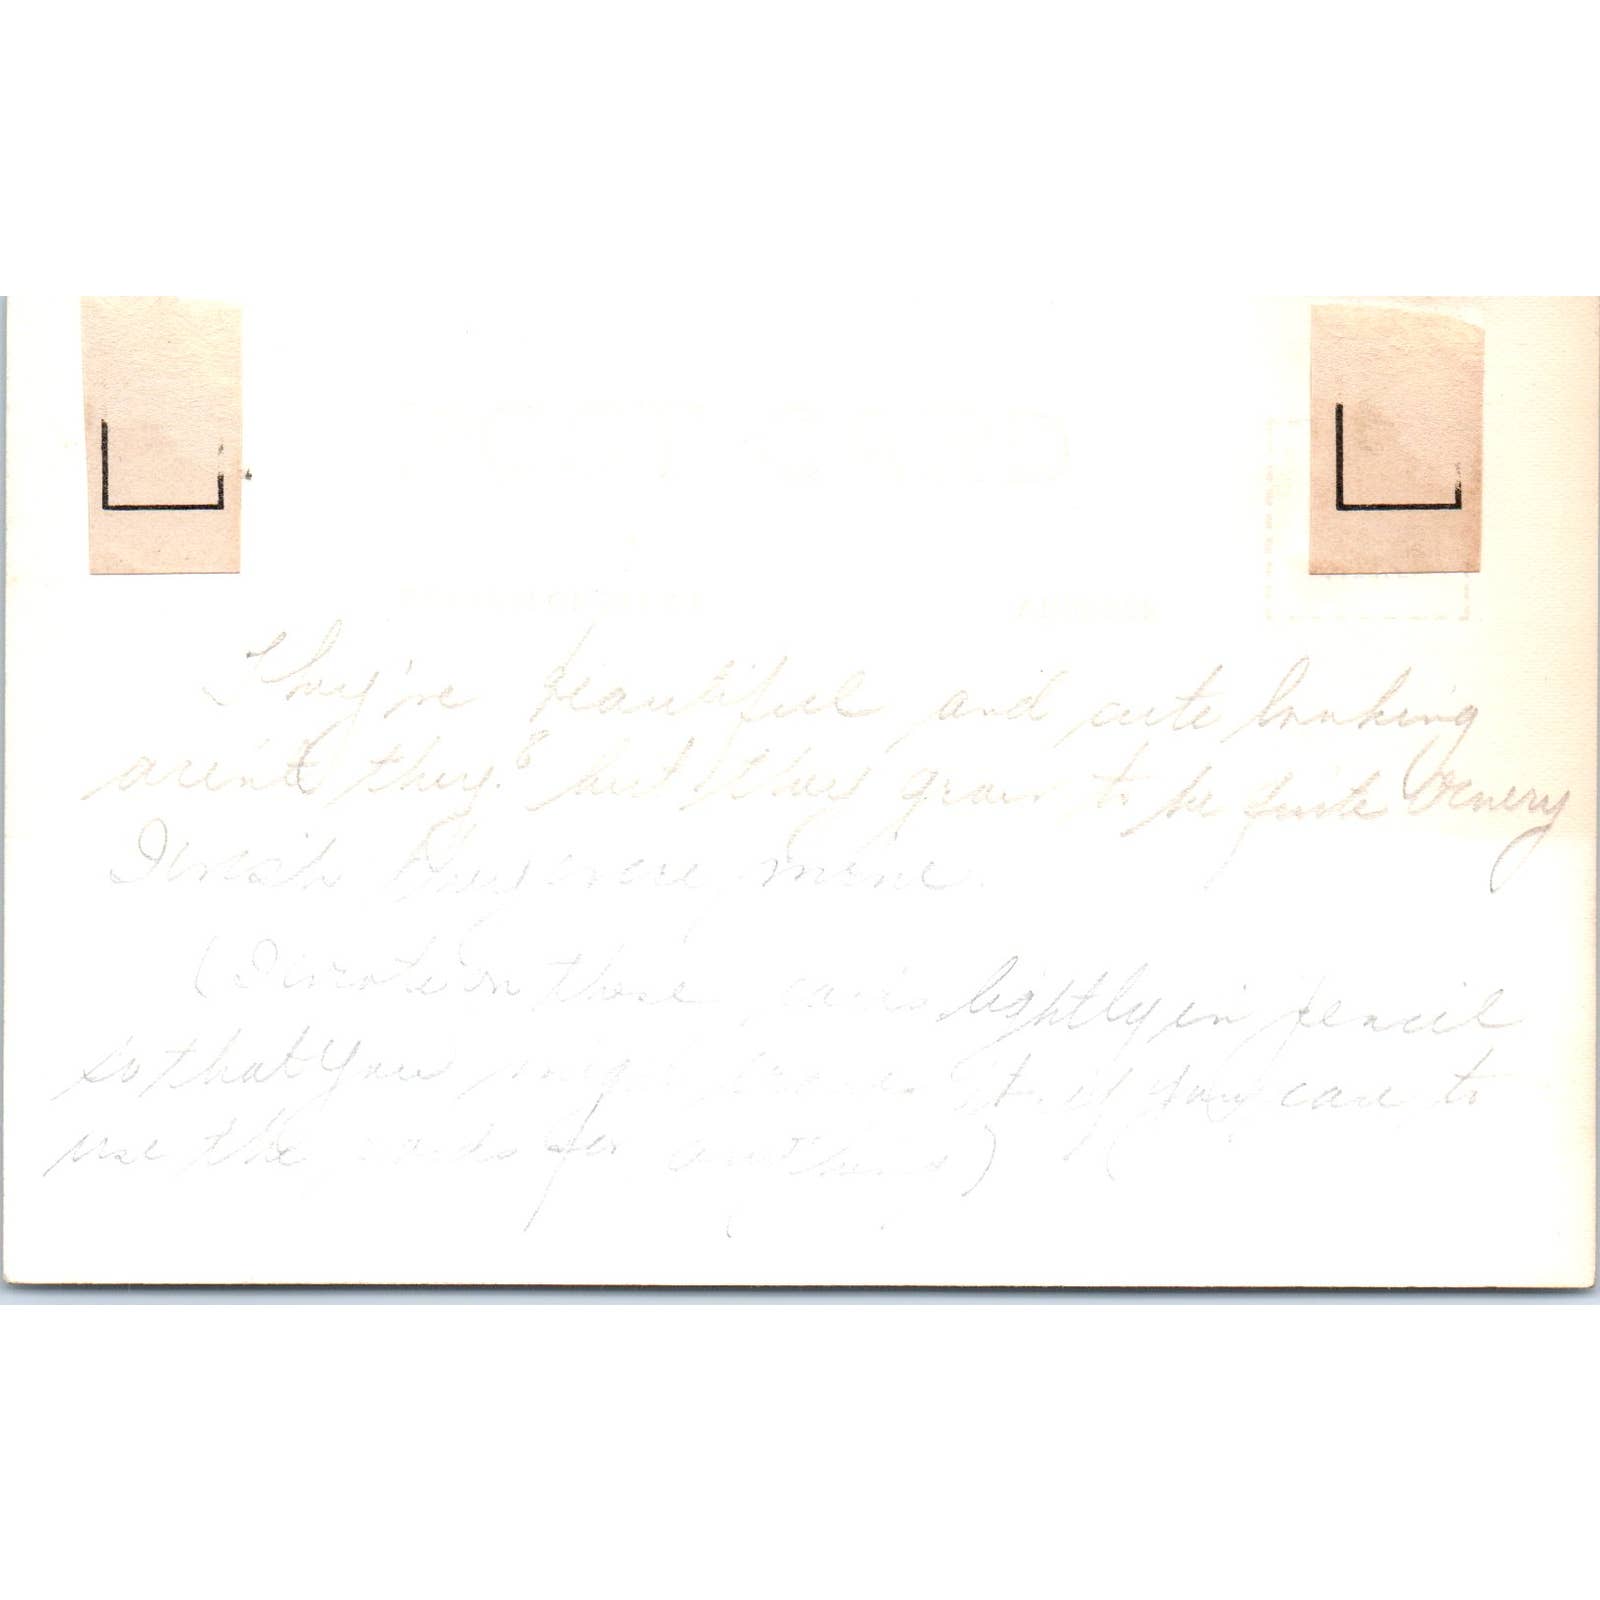 POST CARD
CORRESPONDENCE
ADDRESS
They're beautiful and cute looking
aren't they? but they grow to be quite Ornery
I wish they were mine.
(I wrote on these cards lightly in pencil
so that you might erase it, if you care to
use the cards for anything)